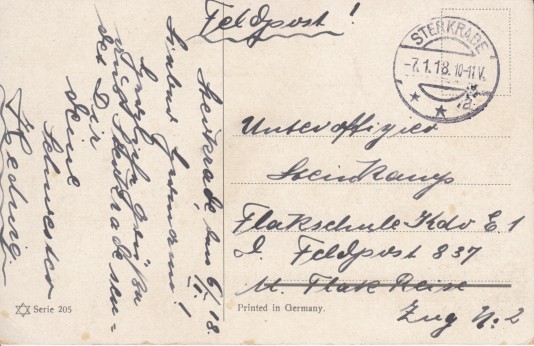 Feldpost!
STERKRADE
-7.1.18.10-11V.
Sterkrade, den 6/I.18.
Lieber Hermann!
Herzliche Grüße
aus Sterkrade sen-
det Dir
deine
Schwester
Hedwig
Unteroffizier
Steinkamp
Flakschule Kdo E. 1
D. Feldpost 837
M. Flak Reise
Zug No: 2
Serie 205
Printed in Germany.